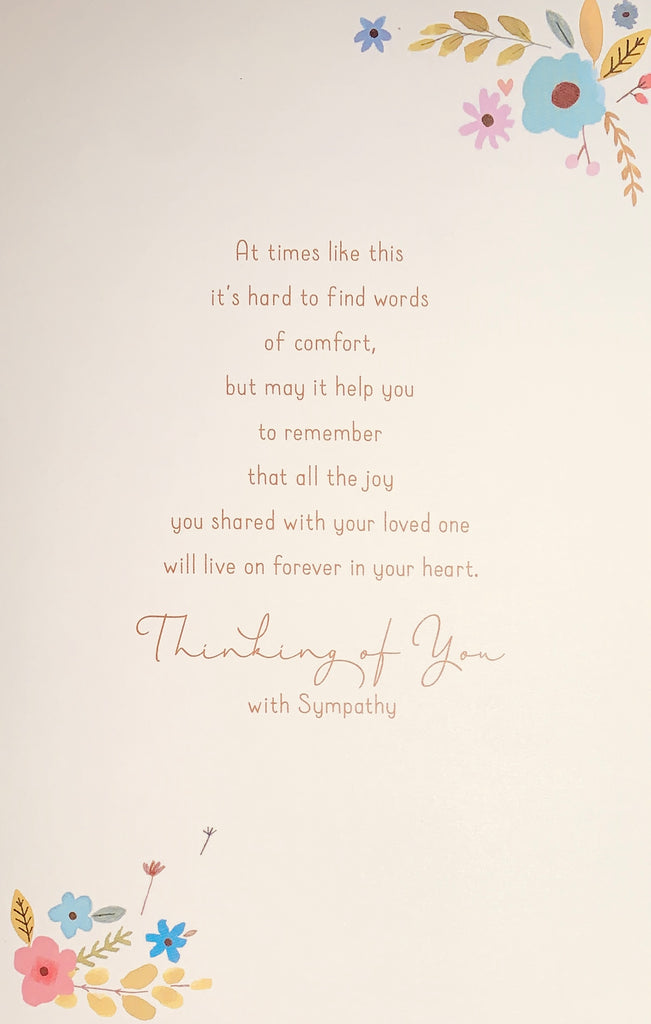 At times like this
it's hard to find words
of comfort,
but may it help you
to remember
that all the joy
you shared with your loved one
will live on forever in your heart.
Thinking of You
with Sympathy